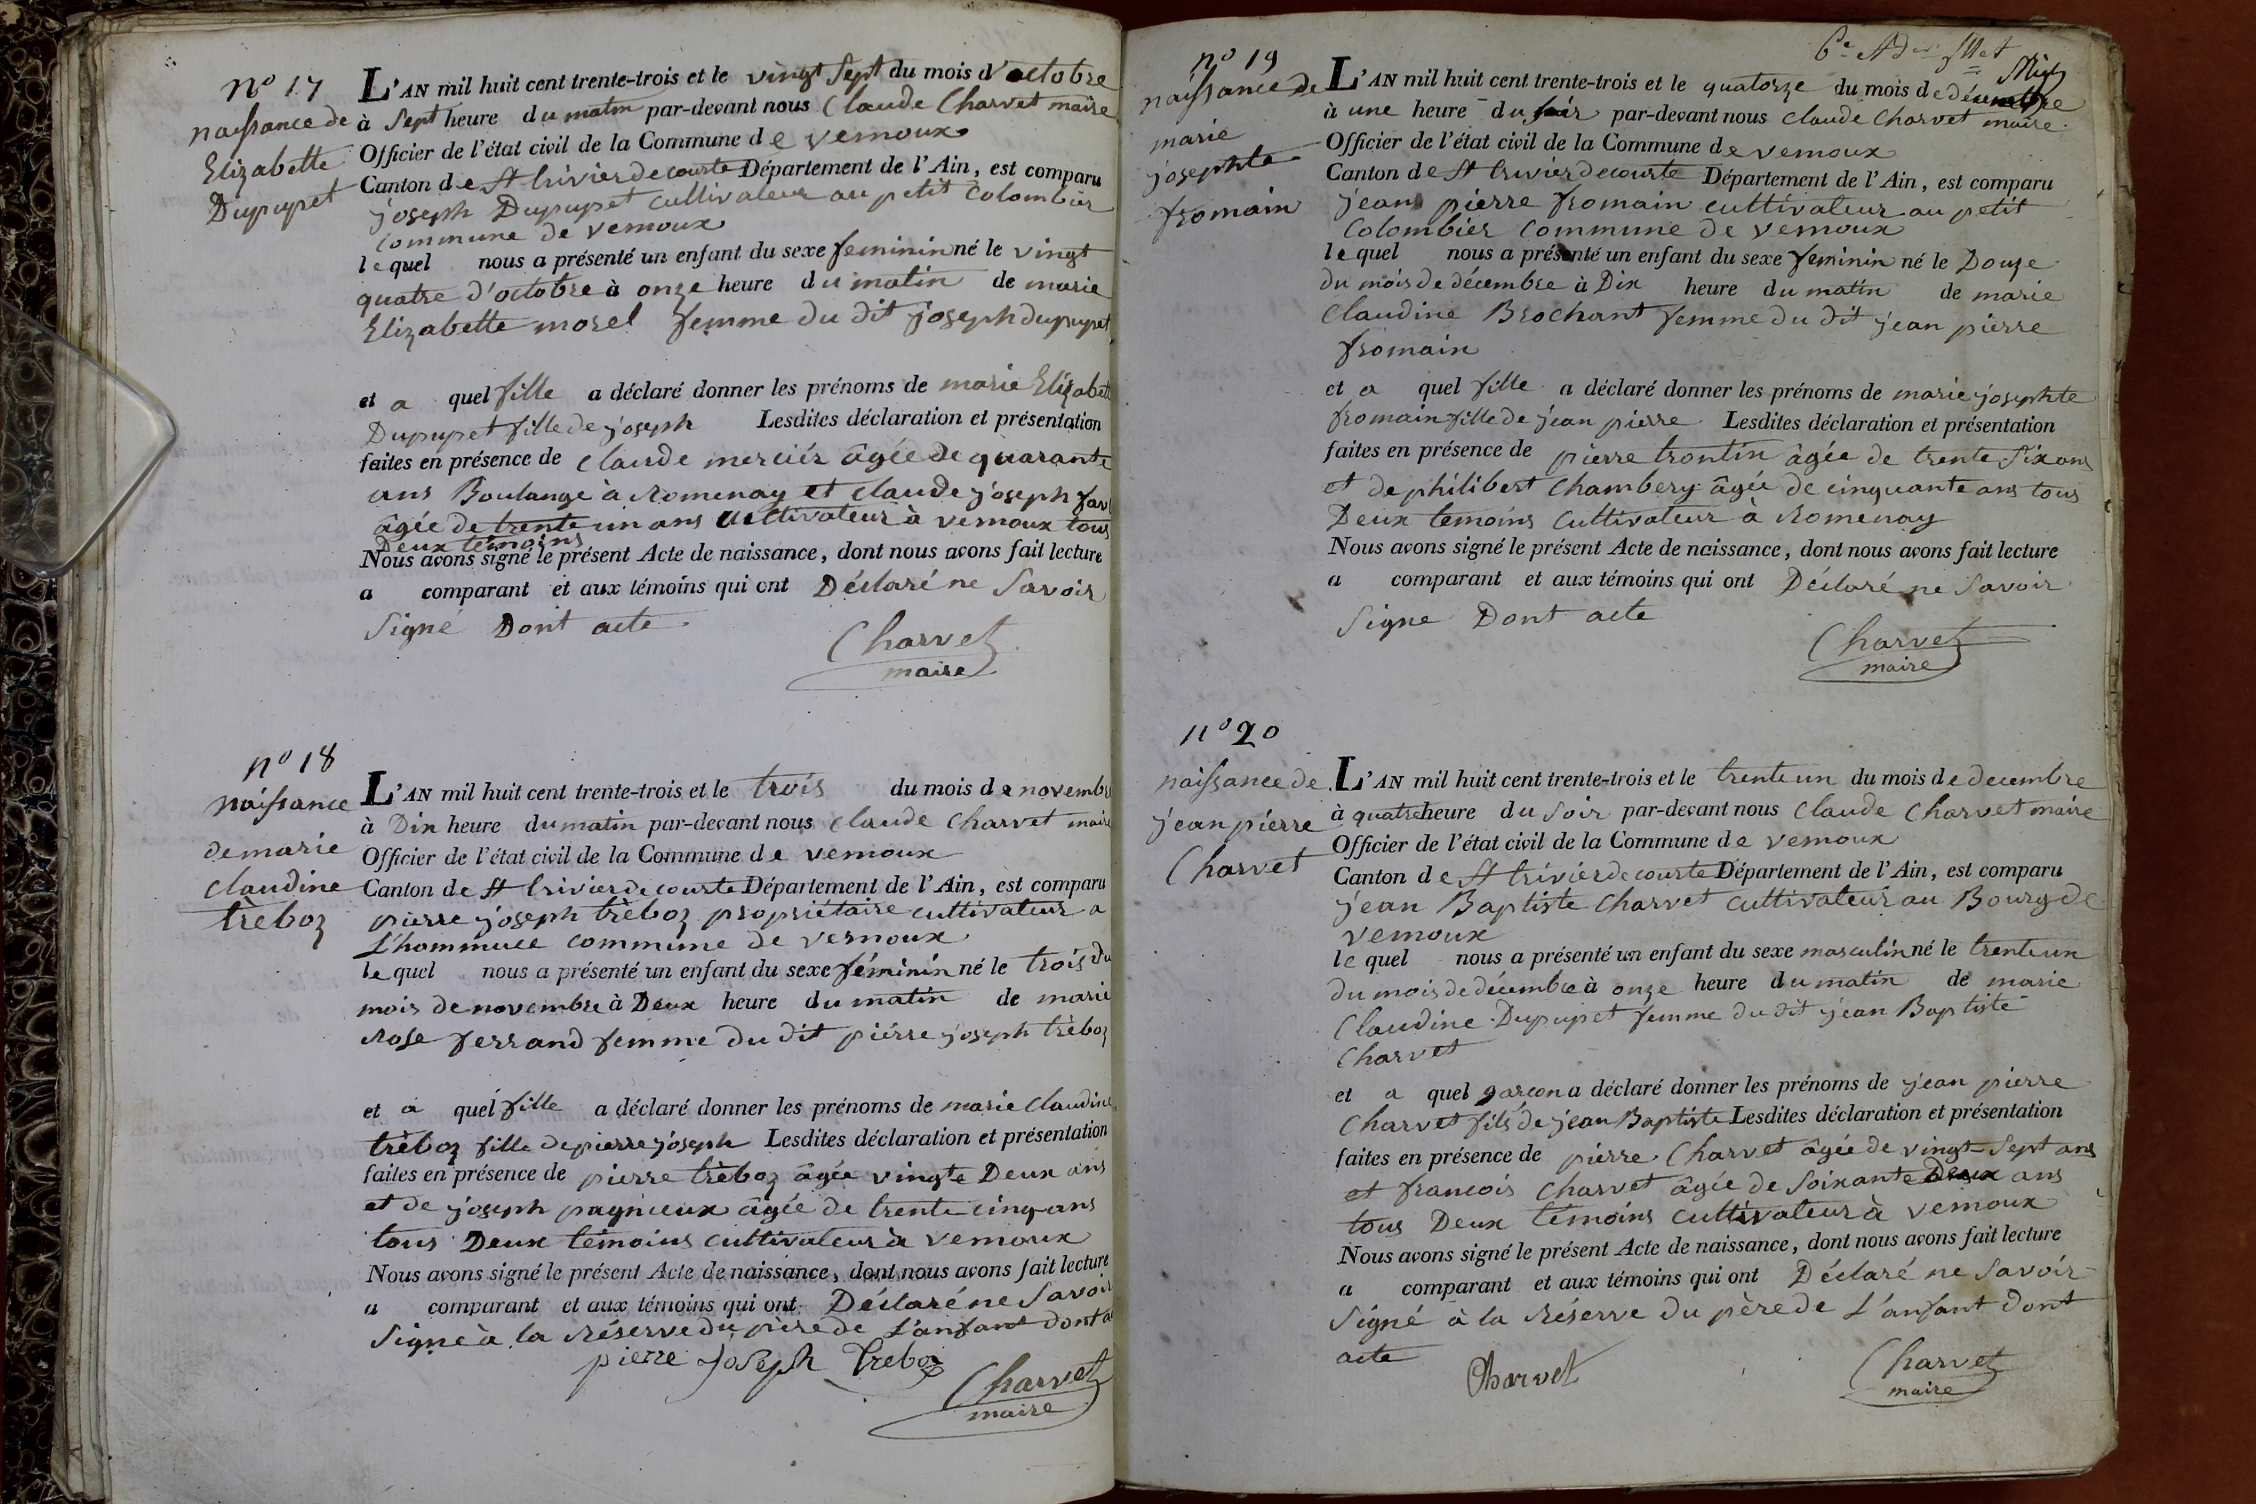 n° 17
naissance de
Elizabette
Dupupet
L'AN mil huit cent trente-trois et le vingt sept du mois d'octobre
à sept heure du matin par-devant nous Claude Charvet maire
Officier de l'état civil de la Commune de vernoux
Canton de St trivier de courte Département de l'Ain, est comparu
joseph Dupupet cultivateur au petit Colombier
Commune de vernoux
le quel nous a présenté un enfant du sexe feminin né le vingt
quatre d'octobre à onze heure du matin de marie
Elizabette morel femme du dit joseph dupupet
et a quel fille a déclaré donner les prénoms de marie Elizabett
Dupupet fille de joseph Lesdites déclaration et présentation
faites en présence de Claude merciér âgée de quarante
ans Boulange à Romenay et Claude joseph
âgée de trente un ans cultivateur à vernoux tous
Deux témoins
Nous avons signé le présent Acte de naissance, dont nous avons fait lecture
a comparant et aux témoins qui ont Déclaré ne Savoir
Signé Dont acte
Charvet
maire
n° 18
naissance
de marie
claudine
trèboz
L'AN mil huit cent trente-trois et le trois du mois de novembre
à Dix heure du matin par-devant nous Claude Charvet maire
Officier de l'état civil de la Commune de vernoux
Canton de St trivier de courte Département de l'Ain, est comparu
pierre joseph trèboz propriétaire cultivateur a
L'hommuce commune de vernoux
le quel nous a présenté un enfant du sexe féminin né le trois du
mois de novembre à Deux heure du matin de marie
Rose ferrand femme du dit piérre joseph trèboz
et a quel fille a déclaré donner les prénoms de marie Claudine
trèboz fille de pierre joseph Lesdites déclaration et présentation
faites en présence de pierre trèboz âgée vingte Deux ans
et de joseph pagnieux âgée de trente cinq ans
tous Deux témoins cultivateur à vernoux
Nous avons signé le présent Acte de naissance, dont nous avons fait lecture
a comparant et aux témoins qui ont Déclaré ne Savoir
Signé à la Réserve du père de L'anfant dont a
pierre joseph Treboz
Charvet
maire
n° 19
naissance de
marie
josephte
fromain
L'AN mil huit cent trente-trois et le quatorze du mois de décembre
à une heure du soir par-devant nous Claude Charvet maire
Officier de l'état civil de la Commune de vernoux
Canton de St trivier de courte Département de l'Ain, est comparu
jean pierre fromain cultivateur au petit
Colombier Commune de vernoux
le quel nous a présenté un enfant du sexe feminin né le Douze
du mois de décembre à Dix heure du matin de marie
Claudine Brochant femme du dit jean pierre
fromain
et a quel fille a déclaré donner les prénoms de marie josephte
fromain fille de jean pierre Lesdites déclaration et présentation
faites en présence de pierre trontin âgée de trente Six ans
et de philibert Chambery âgée de cinquante ans tous
Deux temoins Cultivateur à Romenay
Nous avons signé le présent Acte de naissance, dont nous avons fait lecture
a comparant et aux témoins qui ont Déclaré ne Savoir
Signe Dont acte
Charvet
maire
n° 20
naissance de
jean pierre
Charvet
L'AN mil huit cent trente-trois et le trente un du mois de decembre
à quatre heure du Soir par-devant nous Claude Charvet maire
Officier de l'état civil de la Commune de vernoux
Canton de St trivier de courte Département de l'Ain, est comparu
jean Baptiste Charvet cultivateur au Bourg de
vernoux
le quel nous a présenté un enfant du sexe masculin né le trente un
du mois de décembre à onze heure du matin de marie
Claudine Dupupet femme du dit jean Baptiste
Charvet
et a quel garcon a déclaré donner les prénoms de jean pierre
Charvet fils de jean Baptiste Lesdites déclaration et présentation
faites en présence de pierre Charvet âgée de vingt-Sept ans
et francois Charvet âgée de Soixante Deux ans
tous Deux témoins cultivateur à vernoux
Nous avons signé le présent Acte de naissance, dont nous avons fait lecture
a comparant et aux témoins qui ont Déclaré ne Savoir
Signé à la Réserve du père de L'anfant dont
acte
Charvet
Charvet
maire